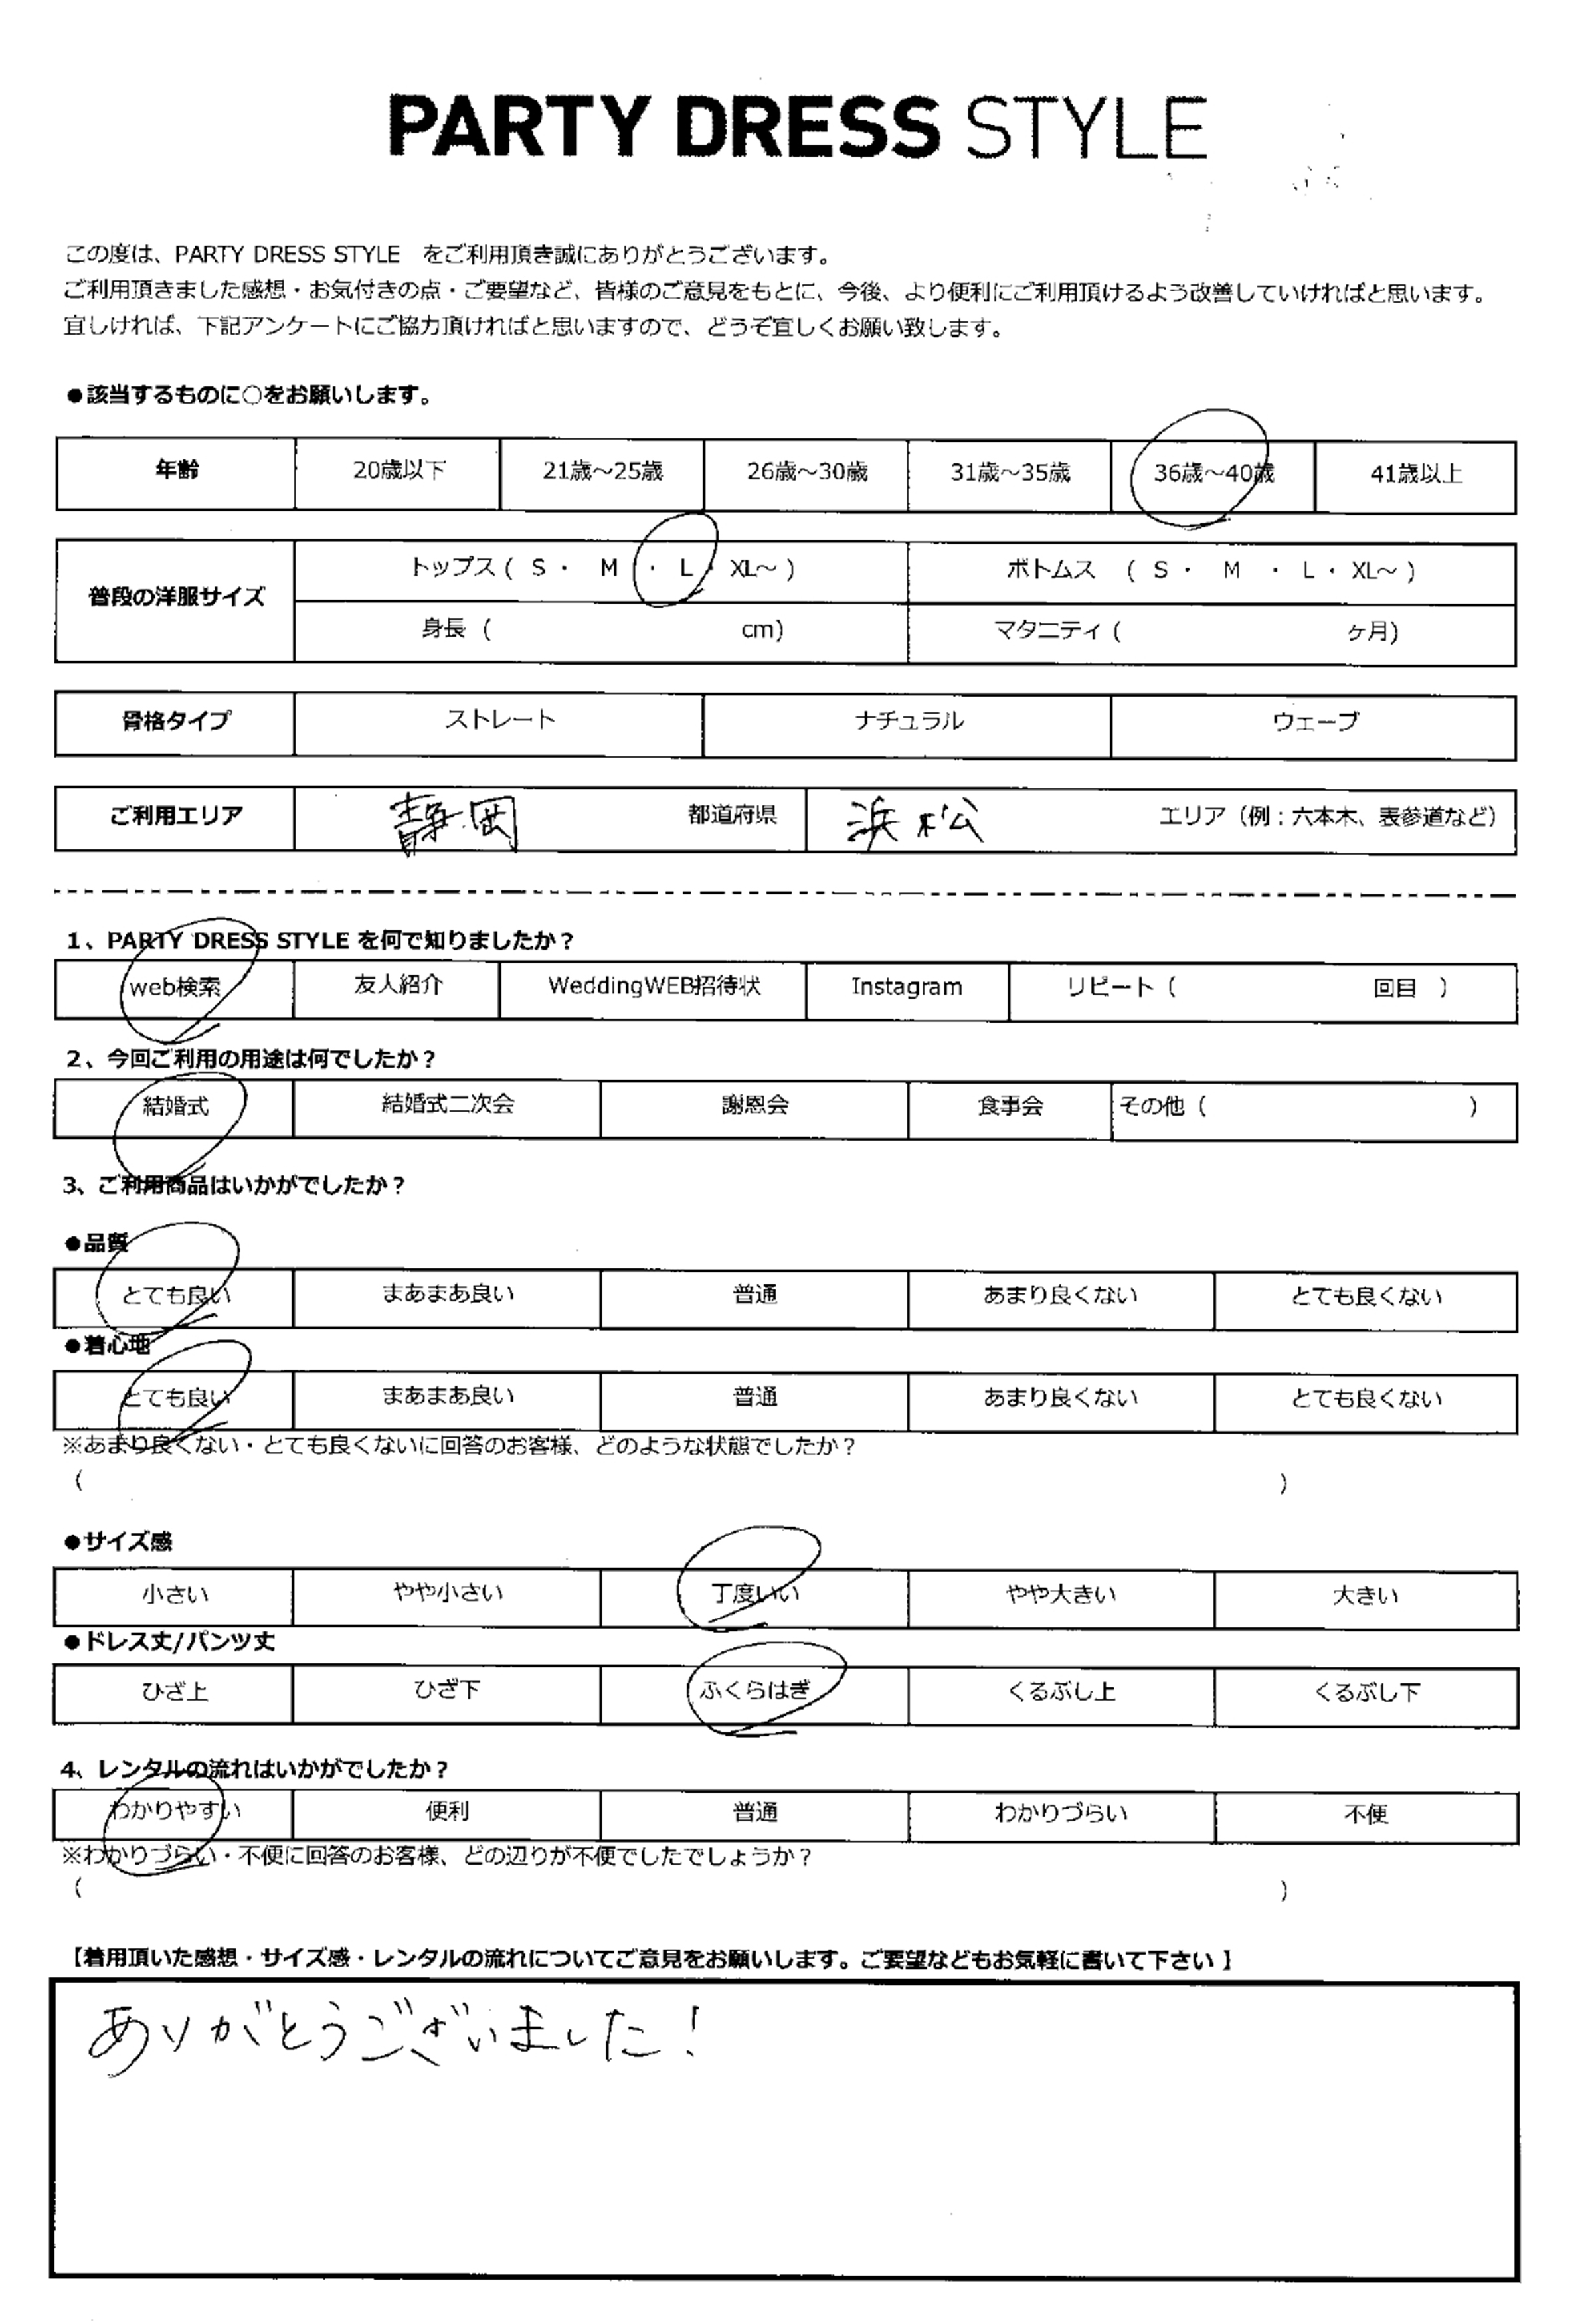 PARTY DRESS STYLE
この度は、PARTY DRESS STYLE　をご利用頂き誠にありがとうございます。
ご利用頂きました感想・お気付きの点・ご要望など、皆様のご意見をもとに、今後、より便利にご利用頂けるよう改善していければと思います。
宜しければ、下記アンケートにご協力頂ければと思いますので、どうぞ宜しくお願い致します。
●該当するものに○をお願いします。
年齢 20歳以下 21歳～25歳 26歳～30歳 31歳～35歳 36歳～40歳 41歳以上
普段の洋服サイズ トップス ( S ・ M ・ L ・ XL～ ) ボトムス ( S ・ M ・ L ・ XL～ )
身長 ( cm) マタニティ ( ケ月)
骨格タイプ ストレート ナチュラル ウェーブ
ご利用エリア 静岡 都道府県 浜松 エリア（例：六本木、表参道など）
1、PARTY DRESS STYLE を何で知りましたか？
web検索 友人紹介 WeddingWEB招待状 Instagram リピート（ 回目 ）
2、今回ご利用の用途は何でしたか？
結婚式 結婚式二次会 謝恩会 食事会 その他（ ）
3、ご利用商品はいかがでしたか？
●品質
とても良い まあまあ良い 普通 あまり良くない とても良くない
●着心地
とても良い まあまあ良い 普通 あまり良くない とても良くない
※あまり良くない・とても良くないに回答のお客様、どのような状態でしたか？
（ ）
●サイズ感
小さい やや小さい 丁度いい やや大きい 大きい
●ドレス丈/パンツ丈
ひざ上 ひざ下 ふくらはぎ くるぶし上 くるぶし下
4、レンタルの流れはいかがでしたか？
わかりやすい 便利 普通 わかりづらい 不便
※わかりづらい・不便に回答のお客様、どの辺りが不便でしたでしょうか？
（ ）
【着用頂いた感想・サイズ感・レンタルの流れについてご意見をお願いします。ご要望などもお気軽に書いて下さい 】
ありがとうございました！